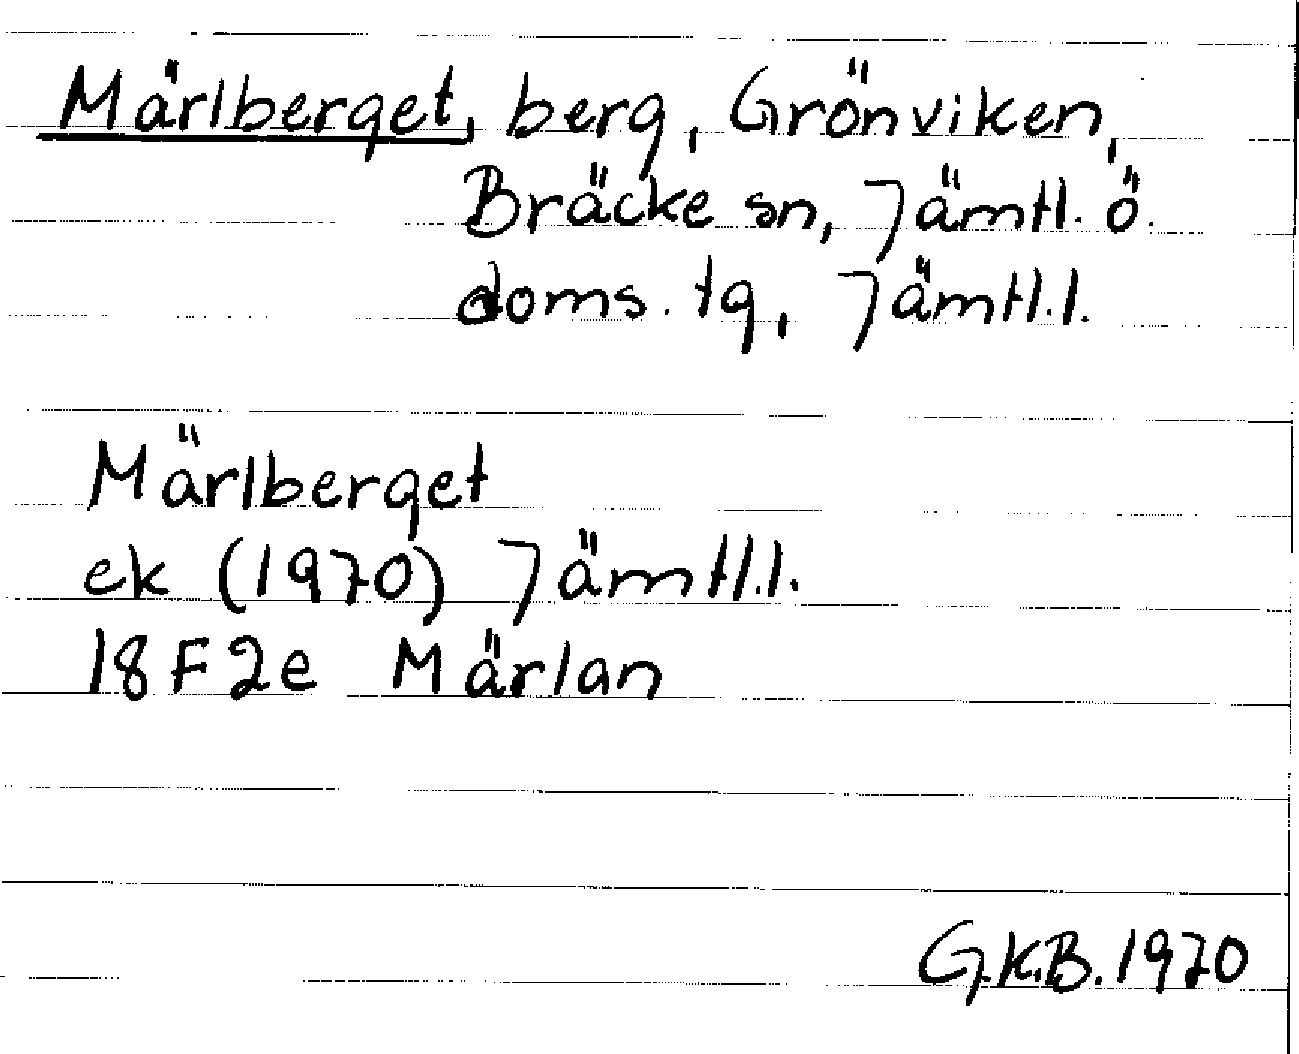 Märlberget, berg, Grönviken,
Bräcke sn, Jämtl. ö.
doms. tg, Jämtl.l.
Märlberget
ek (1970) Jämtl.l.
18F2e Märlan
G.K.B. 1970